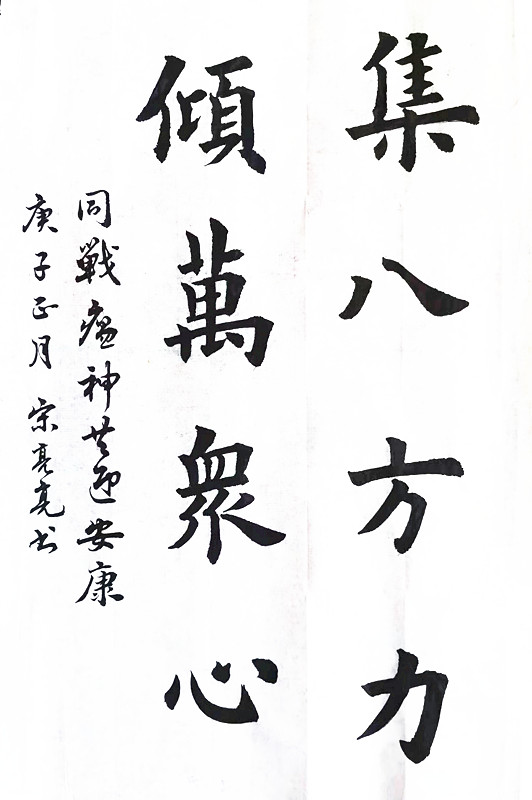 集八方力
傾萬衆心
同戰瘟神共迎安康
庚子正月宗亮亮书